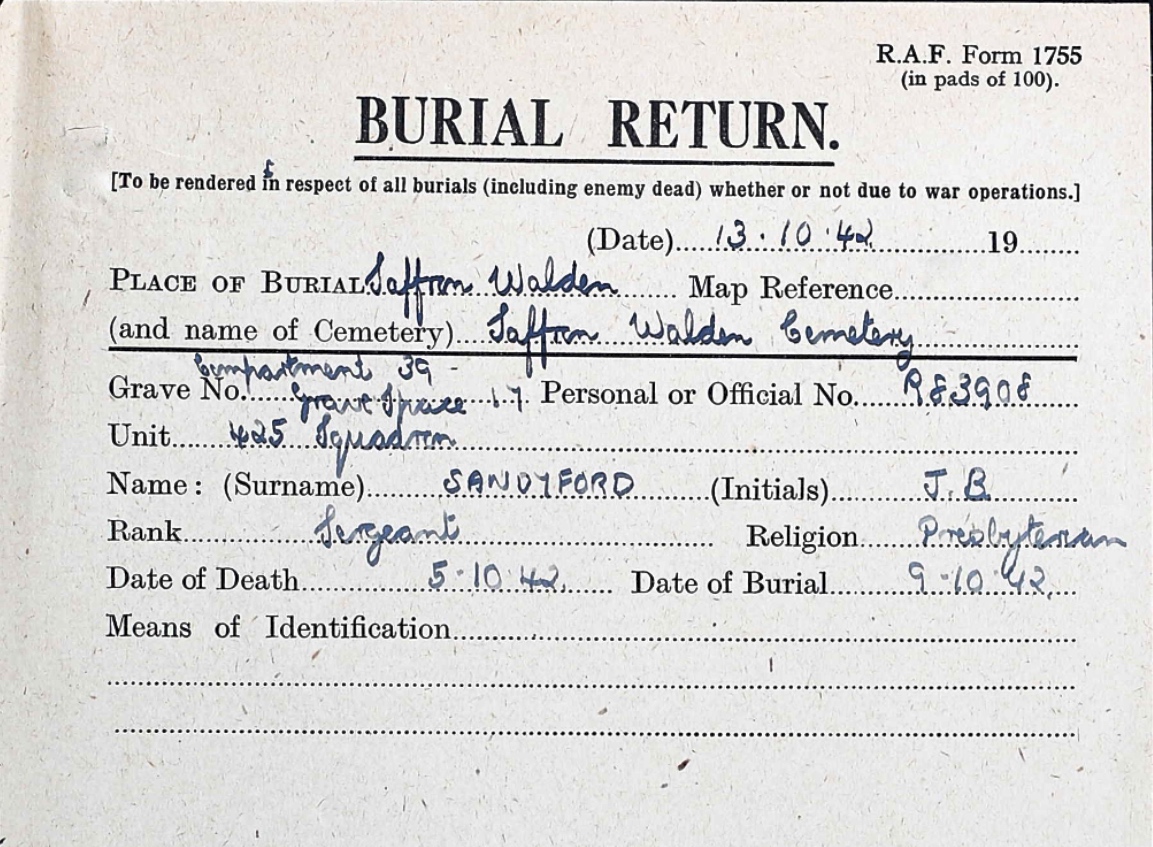 R.A.F. Form 1755
(in pads of 100).
BURIAL RETURN.
[To be rendered in respect of all burials (including enemy dead) whether or not due to war operations.]
(Date) 13.10.42 19
PLACE OF BURIAL Saffron Walden Map Reference
(and name of Cemetery) Saffron Walden Cemetery
Compartment 39 -
Grave No. Grave Space 17. Personal or Official No. R83908
Unit 425 Squadron
Name: (Surname) SANDYFORD (Initials) J.B.
Rank Sergeant Religion Presbyterian
Date of Death 5.10.42. Date of Burial 9.10.42.
Means of Identification